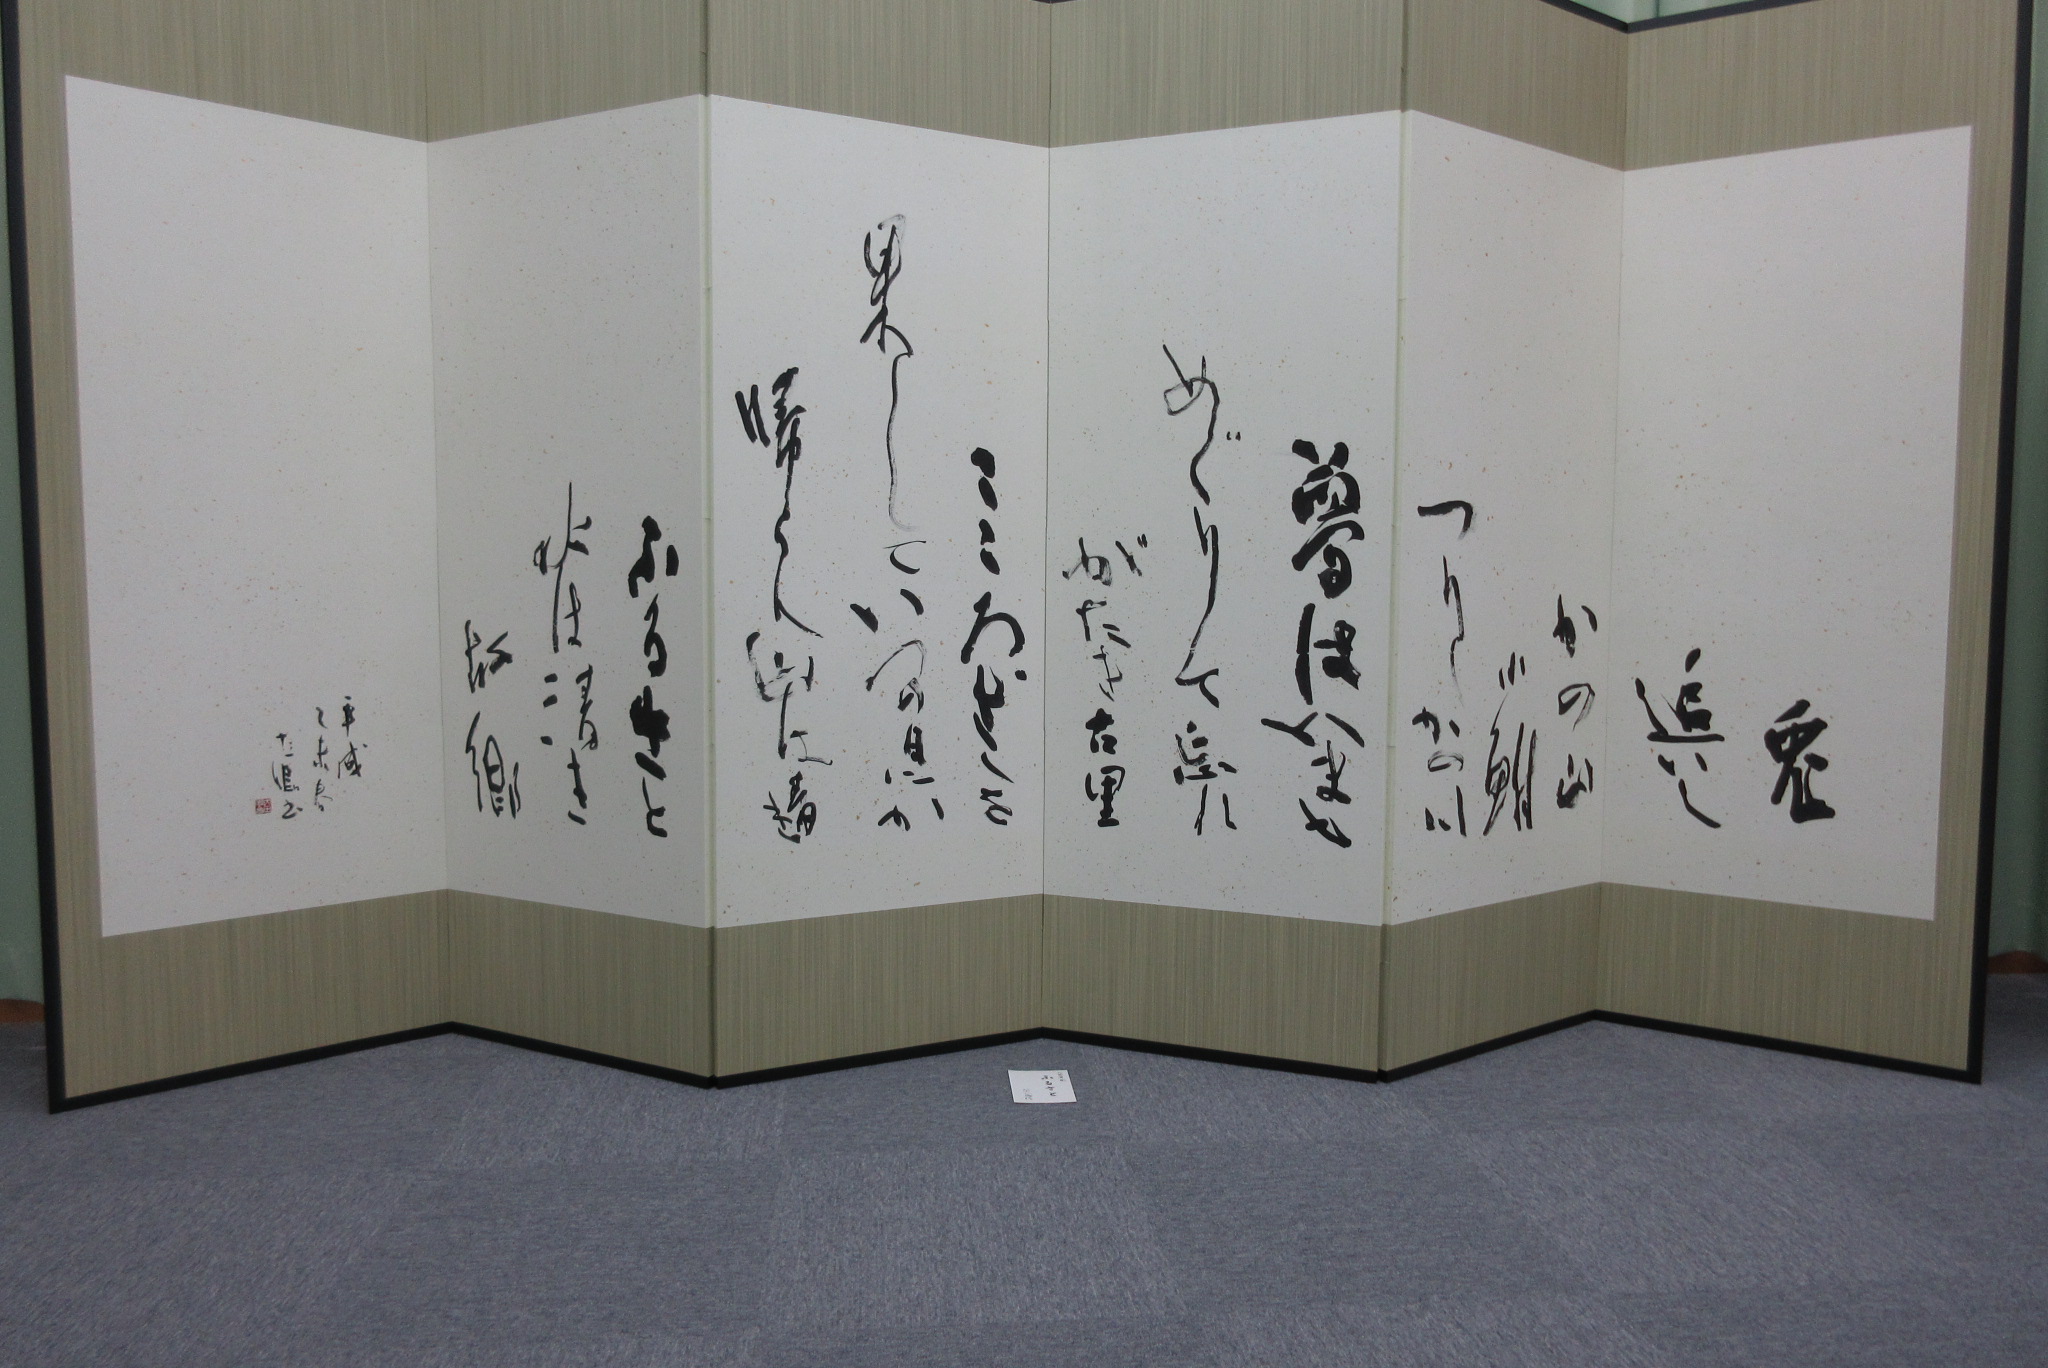 兎
追いし
かの山
小鮒
つりしかの川
夢は今も
めぐりて忘れ
がたき古里
こころざしを
果していつの日にか
帰らん山は青
ふるさと
水は清き
故郷
平成
乙未春
書